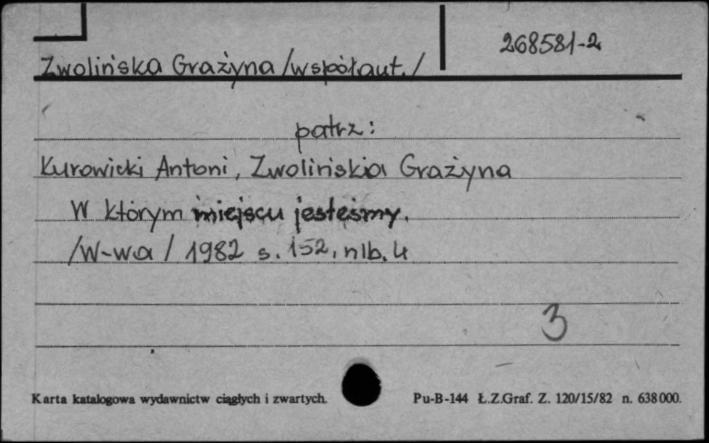 268581-2
Zwolińska Grażyna /współaut./
patrz:
Kurowicki Antoni, Zwolińska Grażyna
W którym miejscu jesteśmy.
/W-wa/ 1982 s. 152, nlb. 4
3
Karta katalogowa wydawnictw ciągłych i zwartych.
Pu-B-144 Ł.Z.Graf. Z. 120/15/82 n. 638000.